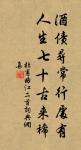 酒債尋常行處有
人生七十古來稀
杜甫曲江二首詞典網